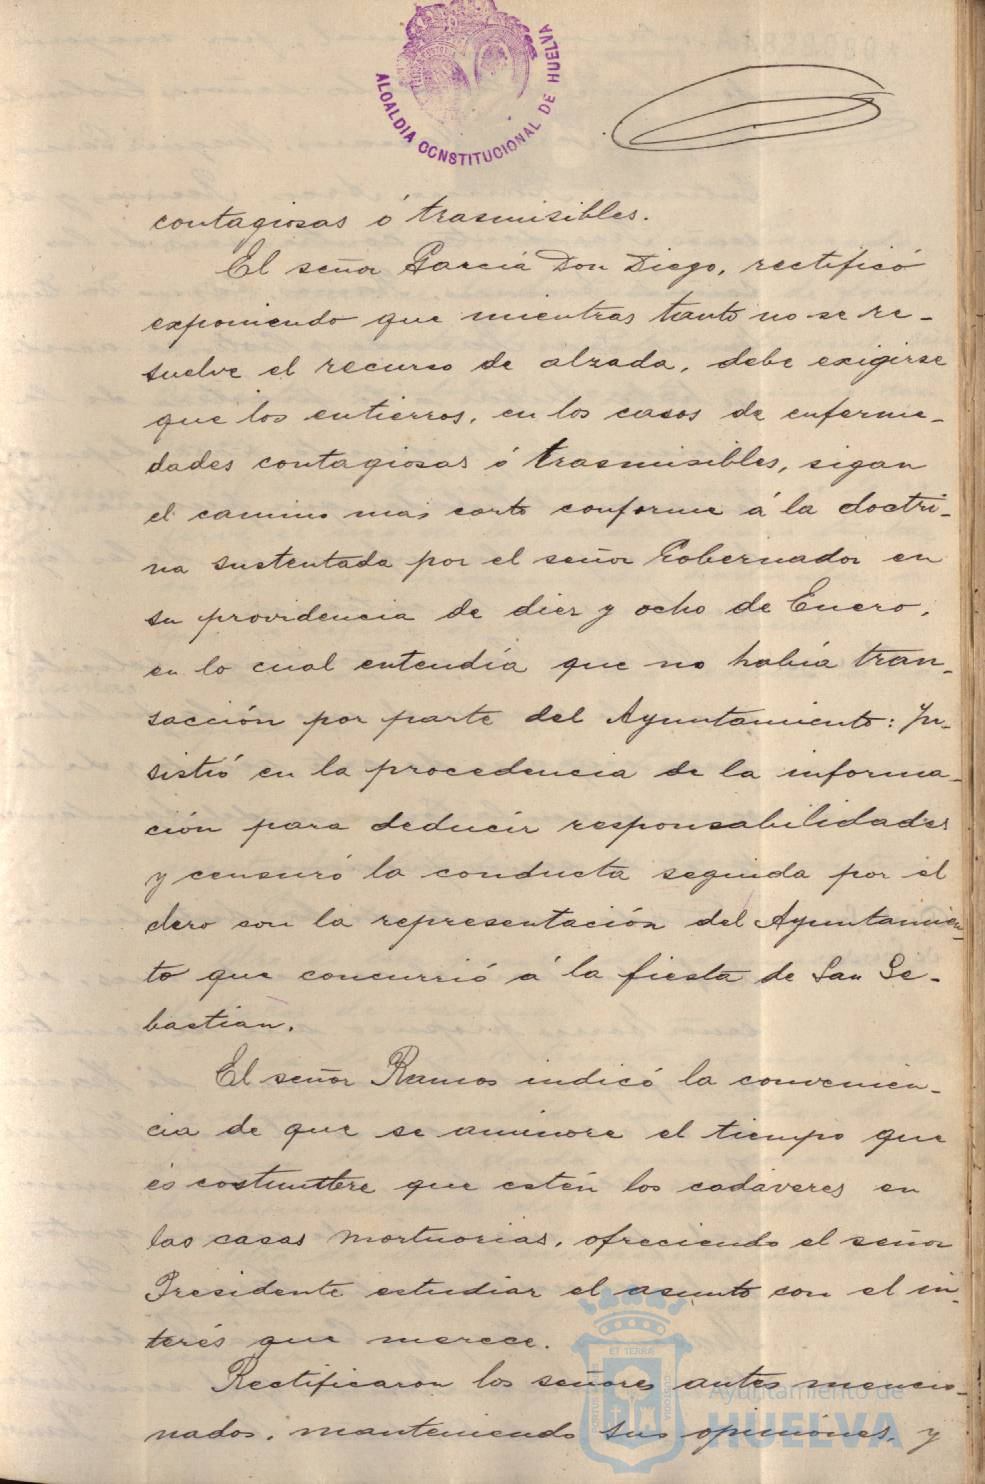 ALCALDIA CONSTITUCIONAL DE HUELVA
contagiosas ó trasmisibles.
El señor García Don Diego, rectificó
exponiendo que mientras tanto no se re-
suelve el recurso de alzada, debe exigirse
que los entierros, en los casos de enferme-
dades contagiosas ó trasmisibles, sigan
el camino mas corto conforme á la doctri-
na sustentada por el señor Gobernador en
su providencia de diez y ocho de Enero,
en lo cual entendía que no había tran-
sacción por parte del Ayuntamiento: Yn-
sistió en la procedencia de la informa-
ción para deducir responsabilidades
y censuró la conducta seguida por el
clero con la representación del Ayuntamien-
to que concurrió á la fiesta de San Se-
bastian.
El señor Ramos indicó la convenien-
cia de que se aminore el tiempo que
es costumbre que estén los cadáveres en
las casas mortuorias, ofreciendo el señor
Presidente estudiar el asunto con el in-
terés que merece.
Rectificaron los señores antes mencio-
nados, manteniendo sus opiniones, y
Ayuntamiento de
HUELVA